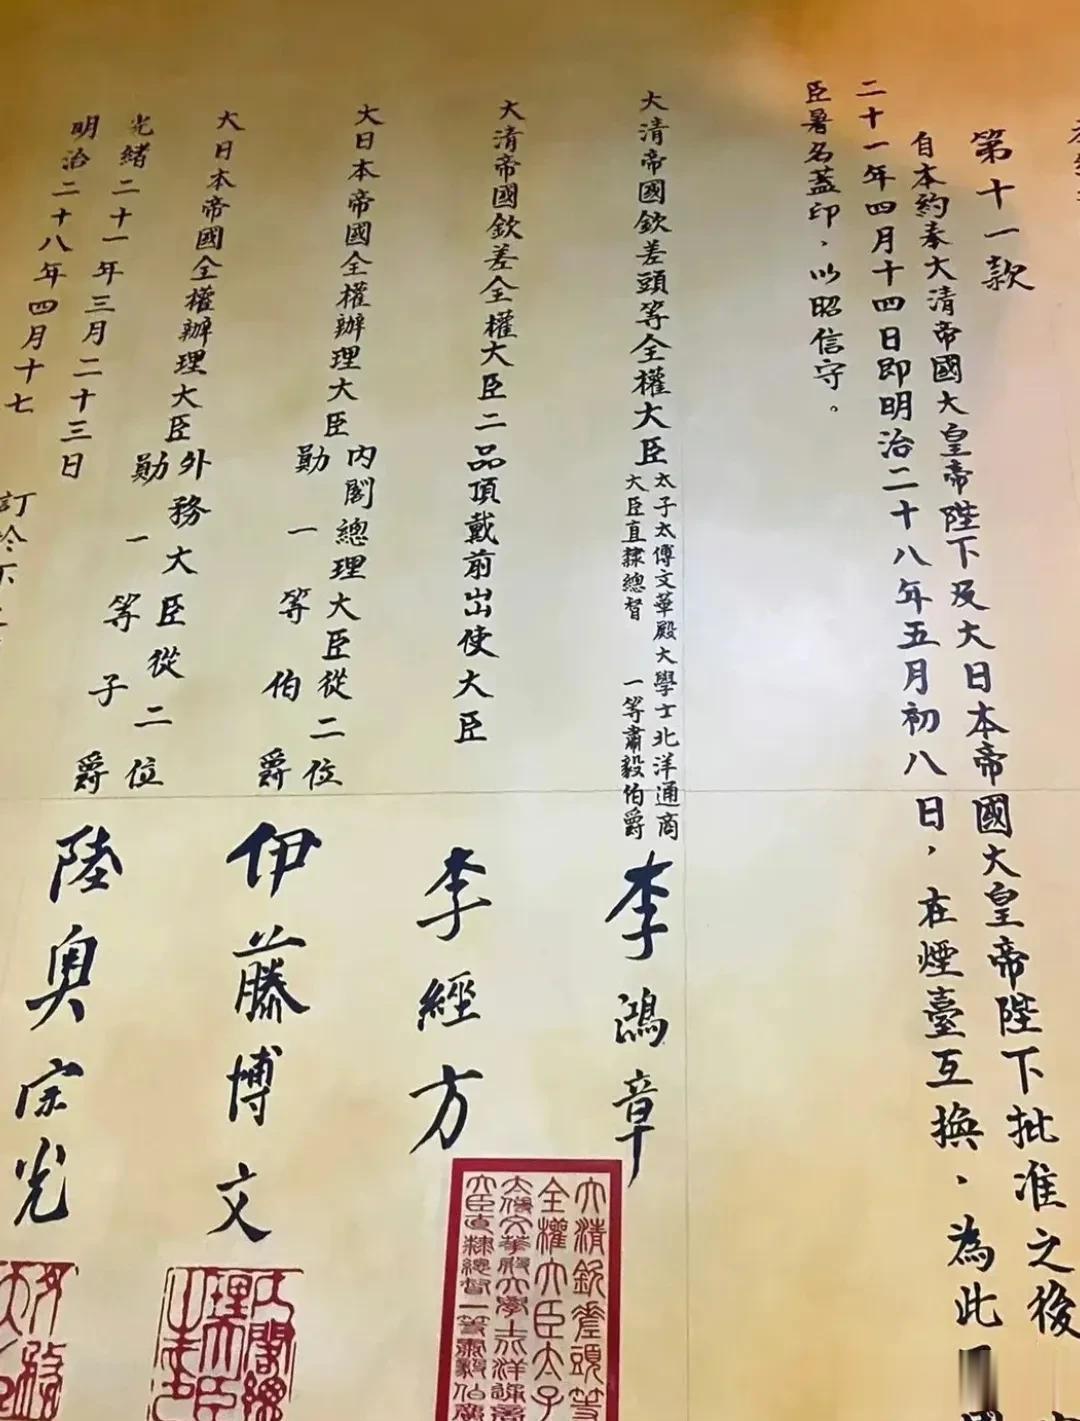 第十一款
自本約奉大清帝國大皇帝陛下及大日本帝國大皇帝陛下批准之後
二十一年四月十四日即明治二十八年五月初八日，在煙臺互換、為此
臣署名蓋印、以昭信守。
大清帝國欽差頭等全權大臣
太子太傅文華殿大學士北洋通商
大臣直隸總督 一等肅毅伯爵
李鴻章
大清帝國欽差全權大臣二品頂戴前出使大臣
李經方
大日本帝國全權辦理大臣
內閣總理大臣從二位
勛一等伯爵
伊藤博文
大日本帝國全權辦理大臣
外務大臣從二位
勛一等子爵
陸奧宗光
光緒二十一年三月二十三日
明治二十八年四月十七
訂於下
大清欽差頭等
全權大臣太子
太傅文華殿大學士北洋通商
大臣直隸總督一等肅毅伯爵
內閣總
理大臣